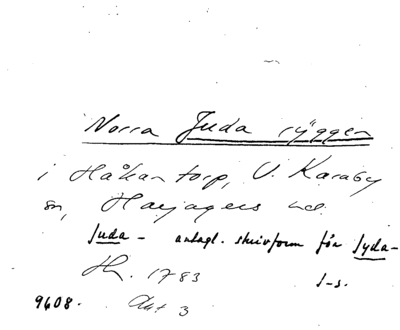 Norra Juda ryggen
i Håkantorp, V. Karaby
sn, Harjagers hd.
Juda- antagl. skrivform för Jyda-
Hn. 1783 J-s.
9608. Akt 3